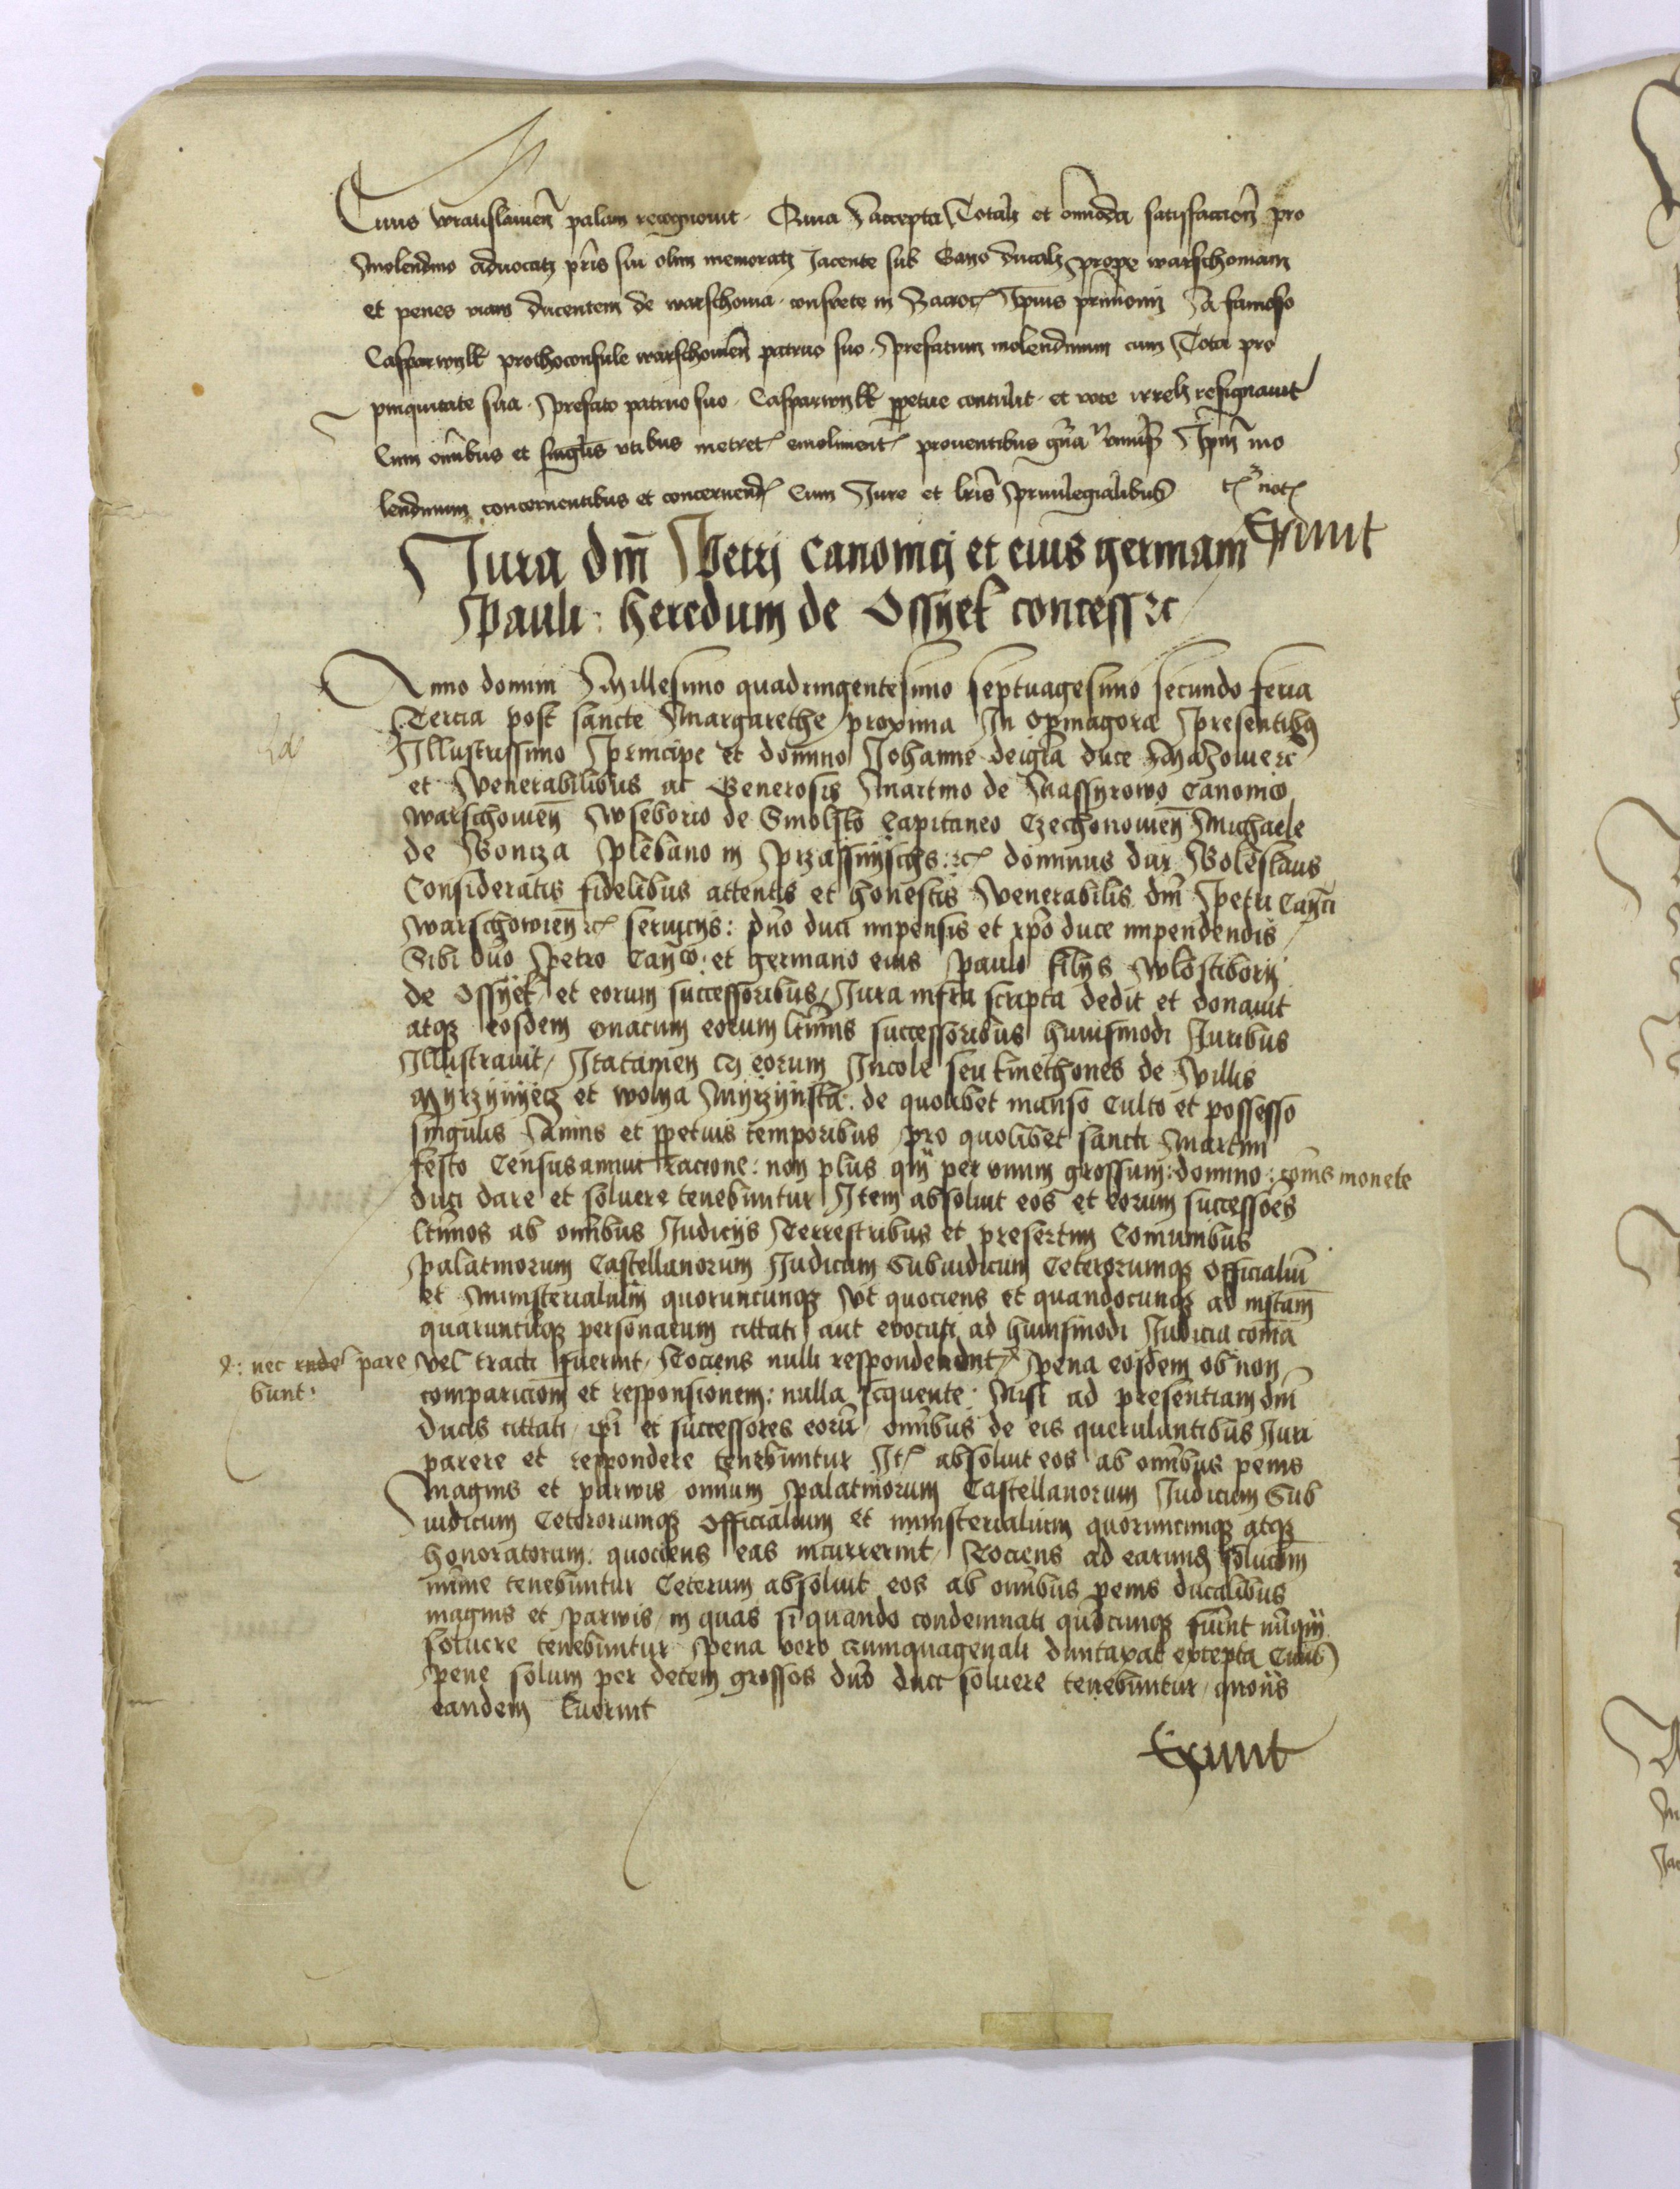 Ciuis wratislauien̄ palam recognouit. Quia Accepta Totali et omoda satisfaccion̄ pro
Molendino aduocatȝ pr̄is sui olim memoratȝ Jacente sub Gayo ducali prope warschouiam
et penes viam ducentem de warschouia. consuete in Zacrocz Ipsius primonij A famoso
Casparwylk prothoconsule warschouien̄ patruo suo. Prefatum molendinum cum Tota pro
pinquitate sua. Prefato patruo suo. Casparwylk ppetue contulit. et voce irreuȝ resignauit
Cum om̄ibus et singlis vtibus metret emoliment prouentibus gn̄a vniuersȝ Ipm̄ mo
lendinum concernentibus et concernend Cum Jure et lr̄is Priuilegialibus
Exiuit
Jura dm̄ Petrj Canonicj et eius germani
Pauli: heredum de Ossyek concess ꝛc
Anno domini Millesimo quadringentesimo septuagesimo secundo feria
Tercia post sancte Margarethe proxima In Opinagora Presentibꝰ
Illustrissimo Principe et domino Johanne deigr̄a duce Mazouie ꝛc
et Venerabilibus ac Generosis Martino de Nassyrowo Canonico
warschouien̄ Wseborio de Smolsko Capitaneo Czechonouien̄ Michaele
de Bonyza Plebano in Przassnyschs: ꝛc dominus dux Boleslaus
Consideratis fidelibus attentis et honestis Venerabilis dm̄ Petri Can̄ci
Warschowien̄ ꝛc seruicijs: dn̄o duci impensis et ip̄o duce impendendis
Sibi dn̄o Petro Can̄co: et germano eius Paulo filijs Wlostiborij
de Ossyek et eorum successoribus Jura infra scripta dedit et donauit
atqȝ eosdem vnacum eorum ltimis successoribus huiusmodi Juribus
Illustrauit, Itatamen qȝ eorum Incole seu kmethones de Villis
Myrzynyecz et wolya Myrzynska: de quolibet manso Culto et possesso
singulis Annis et ppetuis temporibus pro quolibet sancti Martini
festo Censusannui racione: non plus qm̄ per vnum grossum: domino: com̄is monete
duci dare et soluere tenebuntur Item absoluit eos et eorum successoēs
ltimos ab om̄ibus Judicijs Terrestribus et presertim Comunibus
Palatinorum Castellanorum Judicum Subiudicum Ceterorumqȝ Officialiū
et Ministerialium quoruncunqȝ Vt quociens et quandocunqȝ ad instam̄
quaruncūqȝ personarum cittati aut euocati ad huiusmodi Judicia coīa
x: nec eisdeȝ pare
bunt:
Vel tracti fuerint, Tociens nulli respondebunt x Pena eosdem ob non
comparicion̄ et responsionem: nulla sequente: Nisi ad presentiam dm̄
ducis cittati, ip̄i et successores eorū om̄ibus de eis querulantibus Juri
parere et respondere tenebuntur Itȝ absoluit eos ab om̄ibus penis
Magnis et paruis omnium Palatinorum Castellanorum Judicium Sub
iudicum Ceterorumqȝ Officialium et ministerialium quoruncunqȝ atqȝ
honoratorum: quociens eas incurrerint, Tociens ad earundȝ solucōm
mīme tenebuntur Ceterum absoluit eos ab om̄ibus penis ducalibus
magnis et paruis, in quas si quando condemnati quōcunqȝ fuīnt nūqm̄
soluere tenebuntur Pena vero quinquagenali duntaxat excepta Cuius
Pene solum per decem grossos dn̄o duci soluere tenebuntur, quoc̄s
eandem luerint
Exiuit